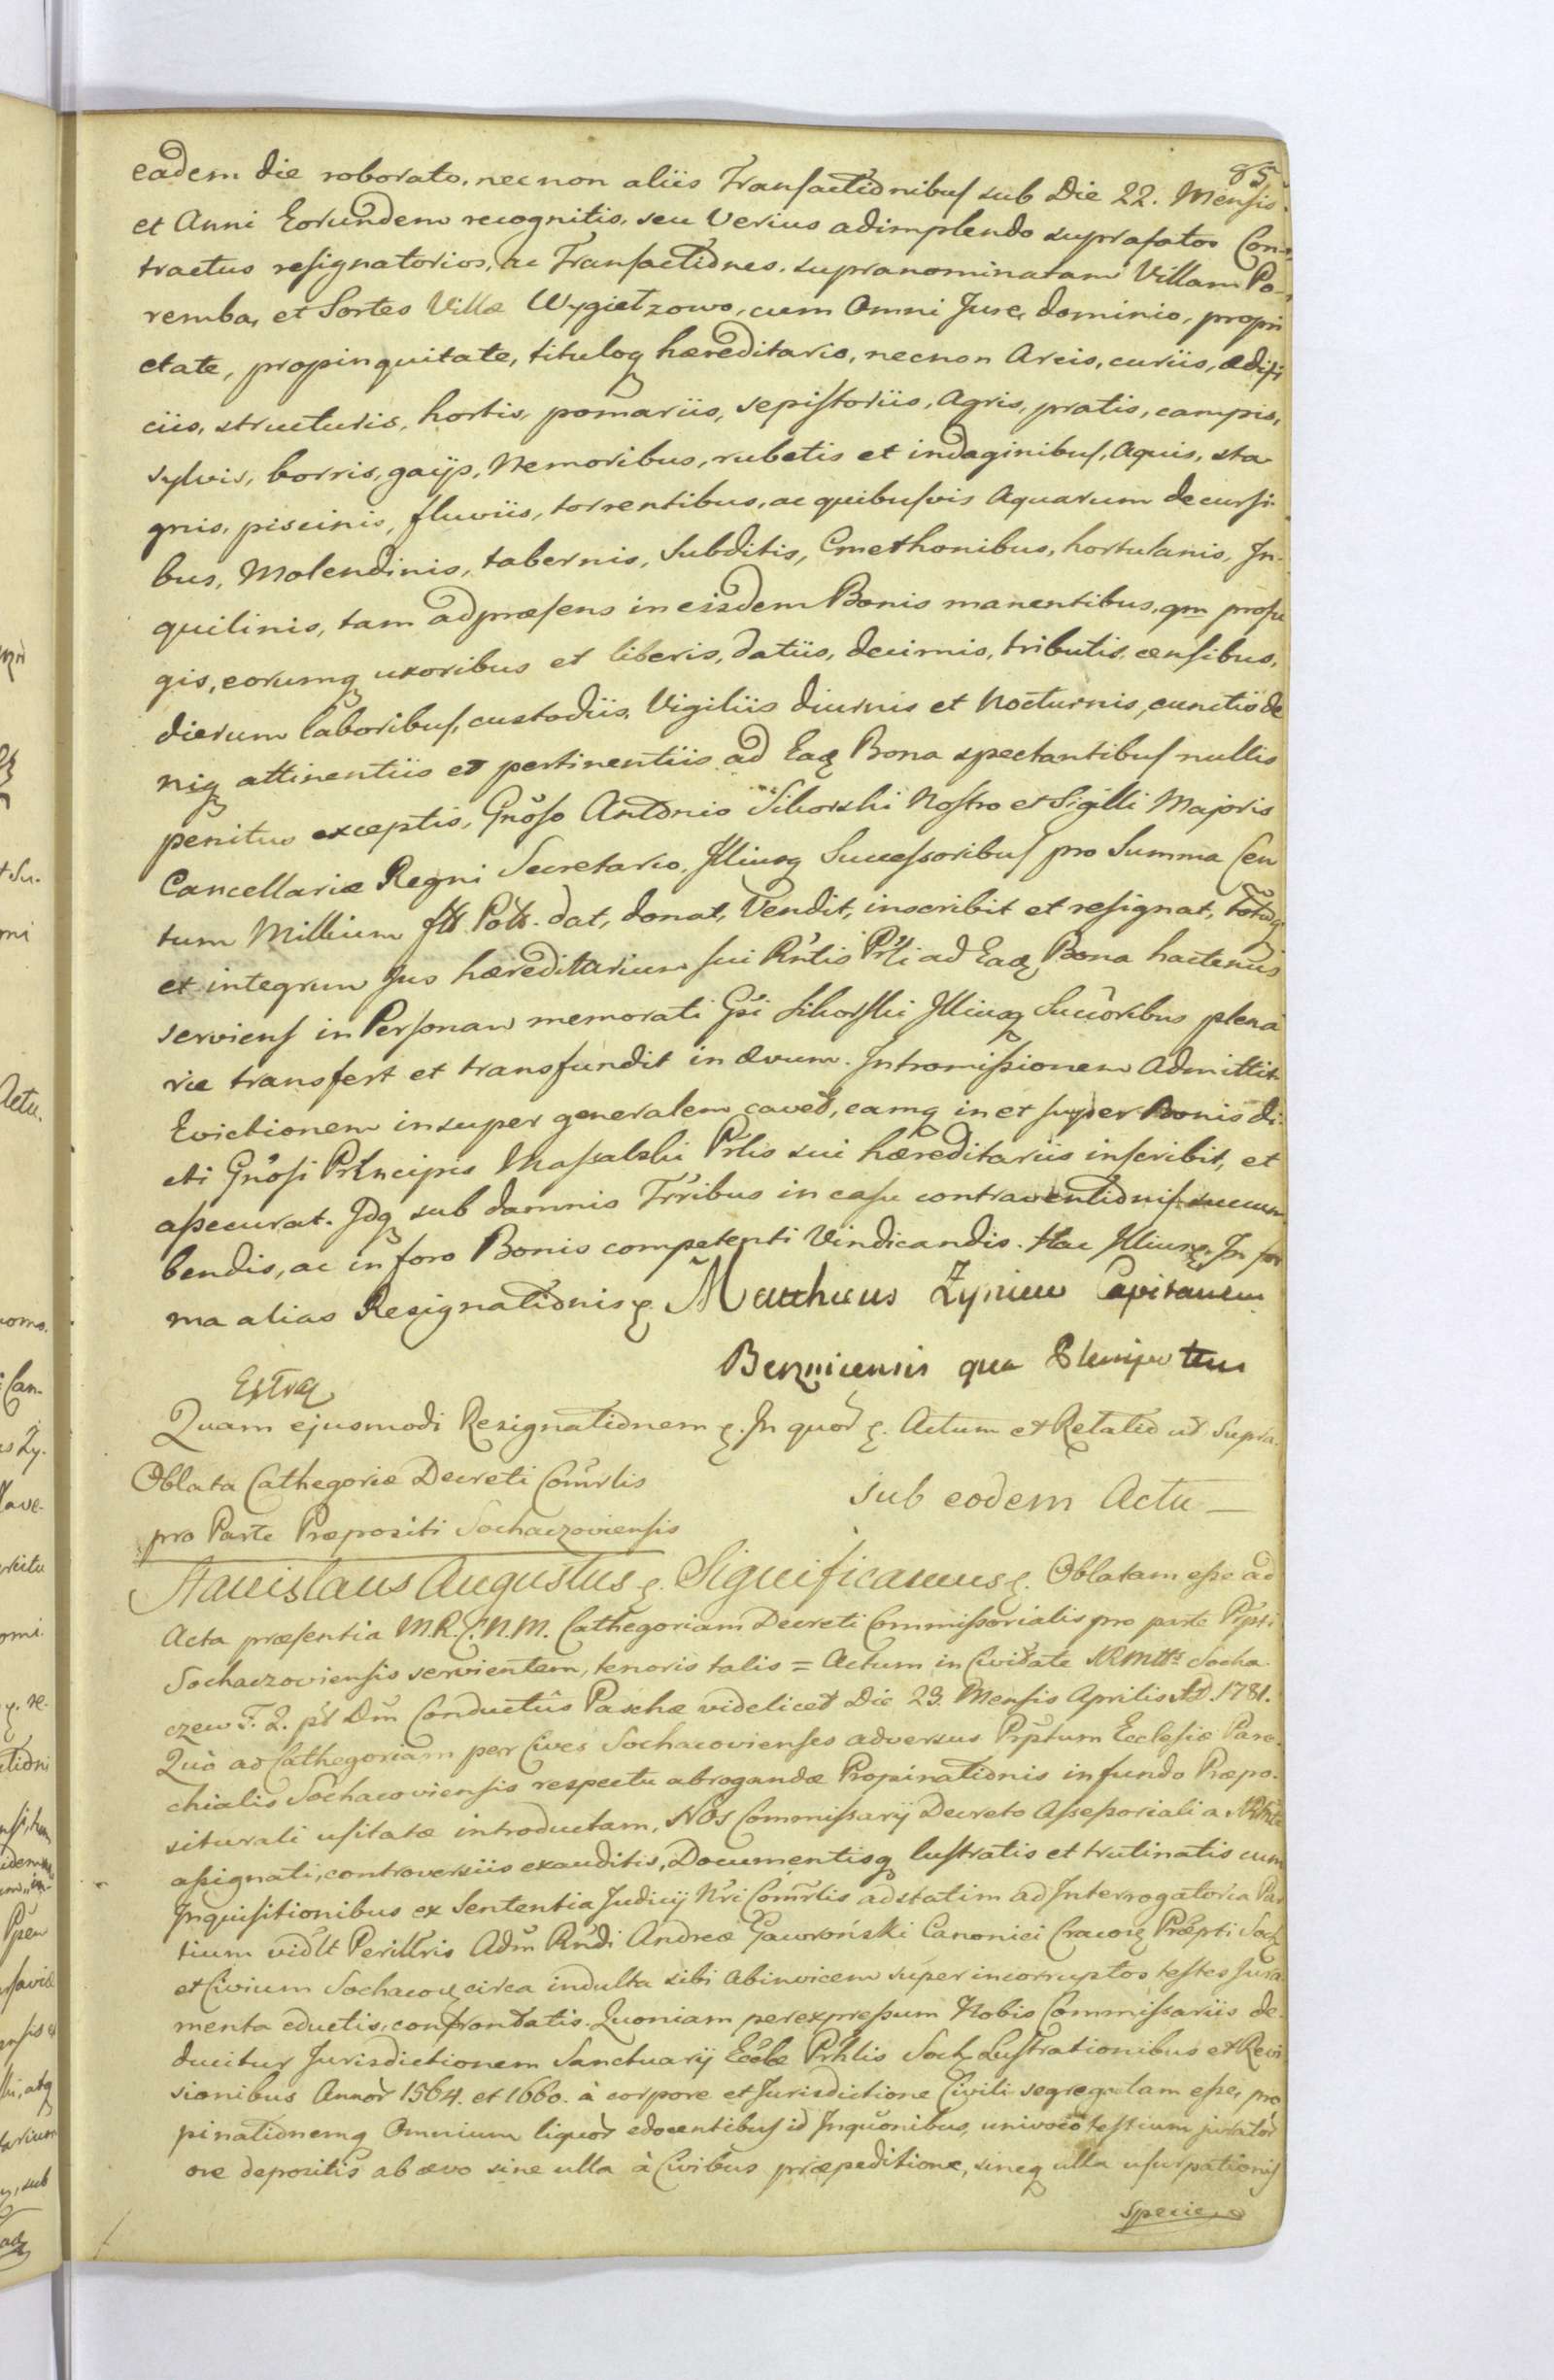 85
eadem die roborato, necnon aliis Transactionibus sub Die 22. Mensis
et Anni Eorundem recognitis, seu Verius adimplendo suprafatos Con-
tractus resignatorios, ac Transactiones, supranominatam Villam Po-
remba, et Sortes Villæ Wygiełzowo, cum Omni Jure, dominio, propri
etate, propinquitate, tituloq hæreditario, necnon Areis, curiis, ædifi
ciis, structuris, hortis, pomariis, sepistoriis, Agris, pratis, campis,
sylvis, borris, gaijs, Nemoribus, rubetis et indaginibus, Aquis, sta-
gnis, piscinis, fluviis, torrentibus, ac quibusvis Aquarum decursi-
bus, Molendinis, tabernis, Subditis, Cmethonibus, hortulanis, In-
quilinis, tam adpræsens in eisdem Bonis manentibus, qm profu
gis, eorumq uxoribus et liberis, datiis, decimis, tributis, censibus,
dierum laboribus, custodiis, Vigiliis diurnis et Nocturnis, cunctis de
niq attinentiis et pertinentiis ad Eaq Bona spectantibus nullis
penitus exceptis, Gnoso Antonio Sikorski Nostro et Sigilli Majoris
Cancellariæ Regni Secretario, Illiusq Successoribus pro Summa Cen
tum Millium fl Pol. dat, donat, Vendit, inscribit et resignat, totuq
et integrum Jus hæreditarium sui Rntis Pli ad Eaq Bona hactenus
serviens in Personam memorati Gsi Sikorski Illiusq Sucoribus plena
rie transfert et transfundit in ævum. Intromissionem Admittit
Evictionem insuper generalem cavet, eamq in et super Bonis di-
cti Gnosi Principis Massalski Prlis sui hæreditariis inscribit, et
assecurat. Idq sub damnis Trribus in casu contraventionis succum
bendis, ac in foro Bonis competenti Vindicandis. Hac Illius In for
ma alias Resignationis Matthæus Zyniew Capitaneus
Berznicensis qua Plenipotens
Extra
Quam ejusmodi Resignationem In quor Actum et Relatio ut Supra.
Oblata Cathegoriæ Decreti Comrlis
pro Parte Præpositi Sochaczoviensis
sub eodem Actu —
Stanislaus Augustus Significamus Oblatam esse ad
Acta præsentia M.R.C.N.M. Cathegoriam Decreti Commissorialis pro parte Ppsti
Sochaczoviensis servientem, tenoris talis = Actum in Civitate Socha-
czew F. 2. pt Dm Conductus Paschæ videlicet Die 23. Mensis Aprilis A.D. 1781.
Quò ad Cathegoriam per Cives Sochacovienses adversus Pptum Ecclesiæ Paro-
chialis Sochacoviensis respectu abrogandæ Propinationis in fundo Præpo-
siturali usitatæ introductam, Nos Commissarij Decreto Assessoriali a
assignati, controversiis exauditis, Documentisq lustratis et trutinatis cum
Inquisitionibus ex Sententia Judicij Nri Comrlis adstatim ad Interrogatoria Par
tium vidlt Perillris Adm Rndi Andreæ Gaworoński Canonici Cracov Præpti Soch
et Civium Sochacov circa indulta sibi abinvicem super incorruptos testes Jura
menta eductis, confrontatis. Quoniam perexpressum Nobis Commissariis de-
ducitur Jurisdictionem Sanctuarij Ecclæ Prhlis Soch Lustrationibus et Revi
sionibus Annor 1564. et 1660. à corpore et Jurisdictione Civili segregatam esse, pro
pinationemq Omnium liquor edocentibus id Inquonibus, univoco testium jurator
ore depositis ab ævo sine ulla à Civibus præpeditione, sineq ulla usurpationis
specie